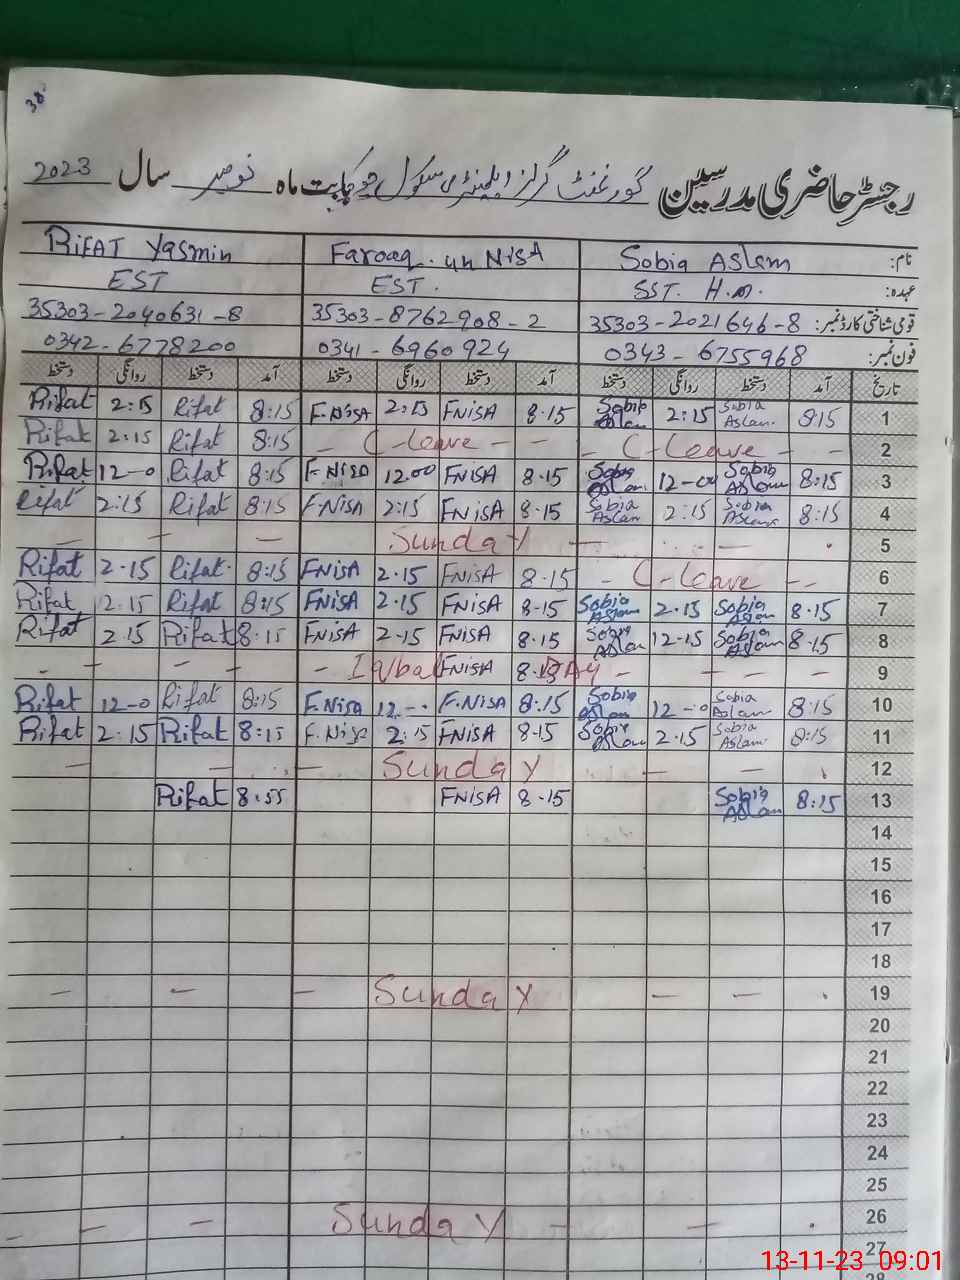 38
رجسٹر حاضری مدرسین گورنمنٹ گرلز ایلیمنٹری سکول بابت ماہ نومبر سال 2023
نام: Sobia Aslam Farooq un NisA RiFAT Yasmin
عہدہ: SST. H.M. EST. EST
قومی شناختی کارڈ نمبر: 35303-2021646-8 35303-8762908-2 35303-2040631-8
فون نمبر: 0343-6755968 0341-6960924 0342-6778200
تاریخ آمد دستخط روانگی دستخط آمد دستخط روانگی دستخط آمد دستخط روانگی دستخط
1 8:15 Sobia Aslam. 2:15 Sobia Aslam 8.15 FNisA 2:15 F.NisA 8:15 Rifat 2:15 Rifat
2 - C-leave - - C-leave - - 8:15 Rifat 2:15 Rifat
3 8:15 Sobia Aslam 12-00 Sobia Aslam 8.15 FNisA 12.00 F.NisA 8:15 Rifat 12-0 Rifat
4 8:15 Sobia Aslam 2:15 Sobia Aslam 8.15 FNisA 2:15 F.NisA 8:15 Rifat 2:15 Rifat
5 Sunday
6 - C-leave -- 8.15 FNisA 2.15 FNisA 8:15 Rifat. 2.15 Rifat
7 8.15 Sobia Aslam 2.15 Sobia Aslam 8.15 FNisA 2.15 FNisA 8:15 Rifat 2.15 Rifat
8 8.15 Sobia Aslam 12-15 Sobia Aslam 8.15 FNisA 2-15 FNisA 8.15 Rifat 2.15 Rifat
9 Iqbal FNisA DAy
10 8:15 Sobia Aslam 12-0 Sobia Aslam 8.15 F.NisA 12-- F.Nisa 8:15 Rifat 12-0 Rifat
11 8:15 Sobia Aslam. 2.15 Sobia Aslam 8.15 FNisA 2:15 F.Nisa 8:15 Rifat 2:15 Rifat
12 Sunday
13 8:15 Sobia Aslam 8.15 FNisA 8:55 Rifat
14
15
16
17
18
19 Sunday
20
21
22
23
24
25
26 Sunday
27
28
13-11-23 09:01